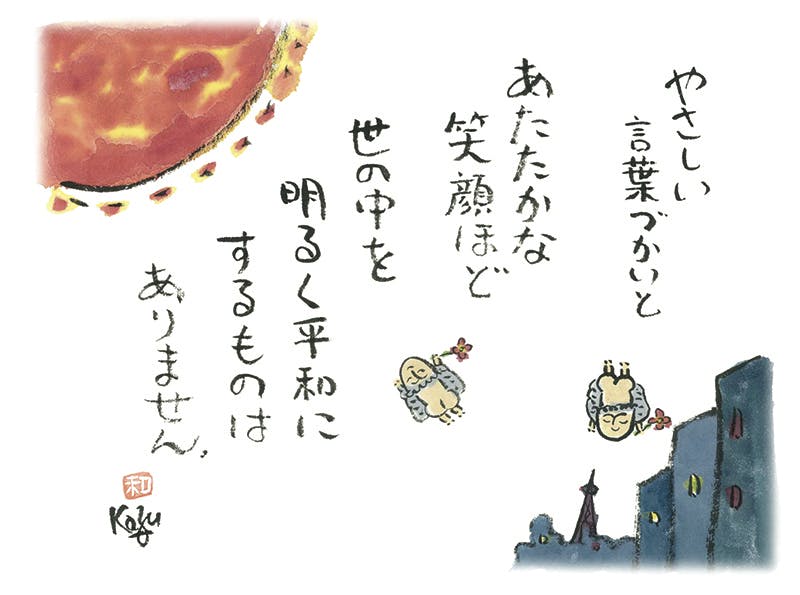 やさしい
言葉づかいと
あたたかな
笑顔ほど
世の中を
明るく平和に
するものは
ありません。
和
Kazu